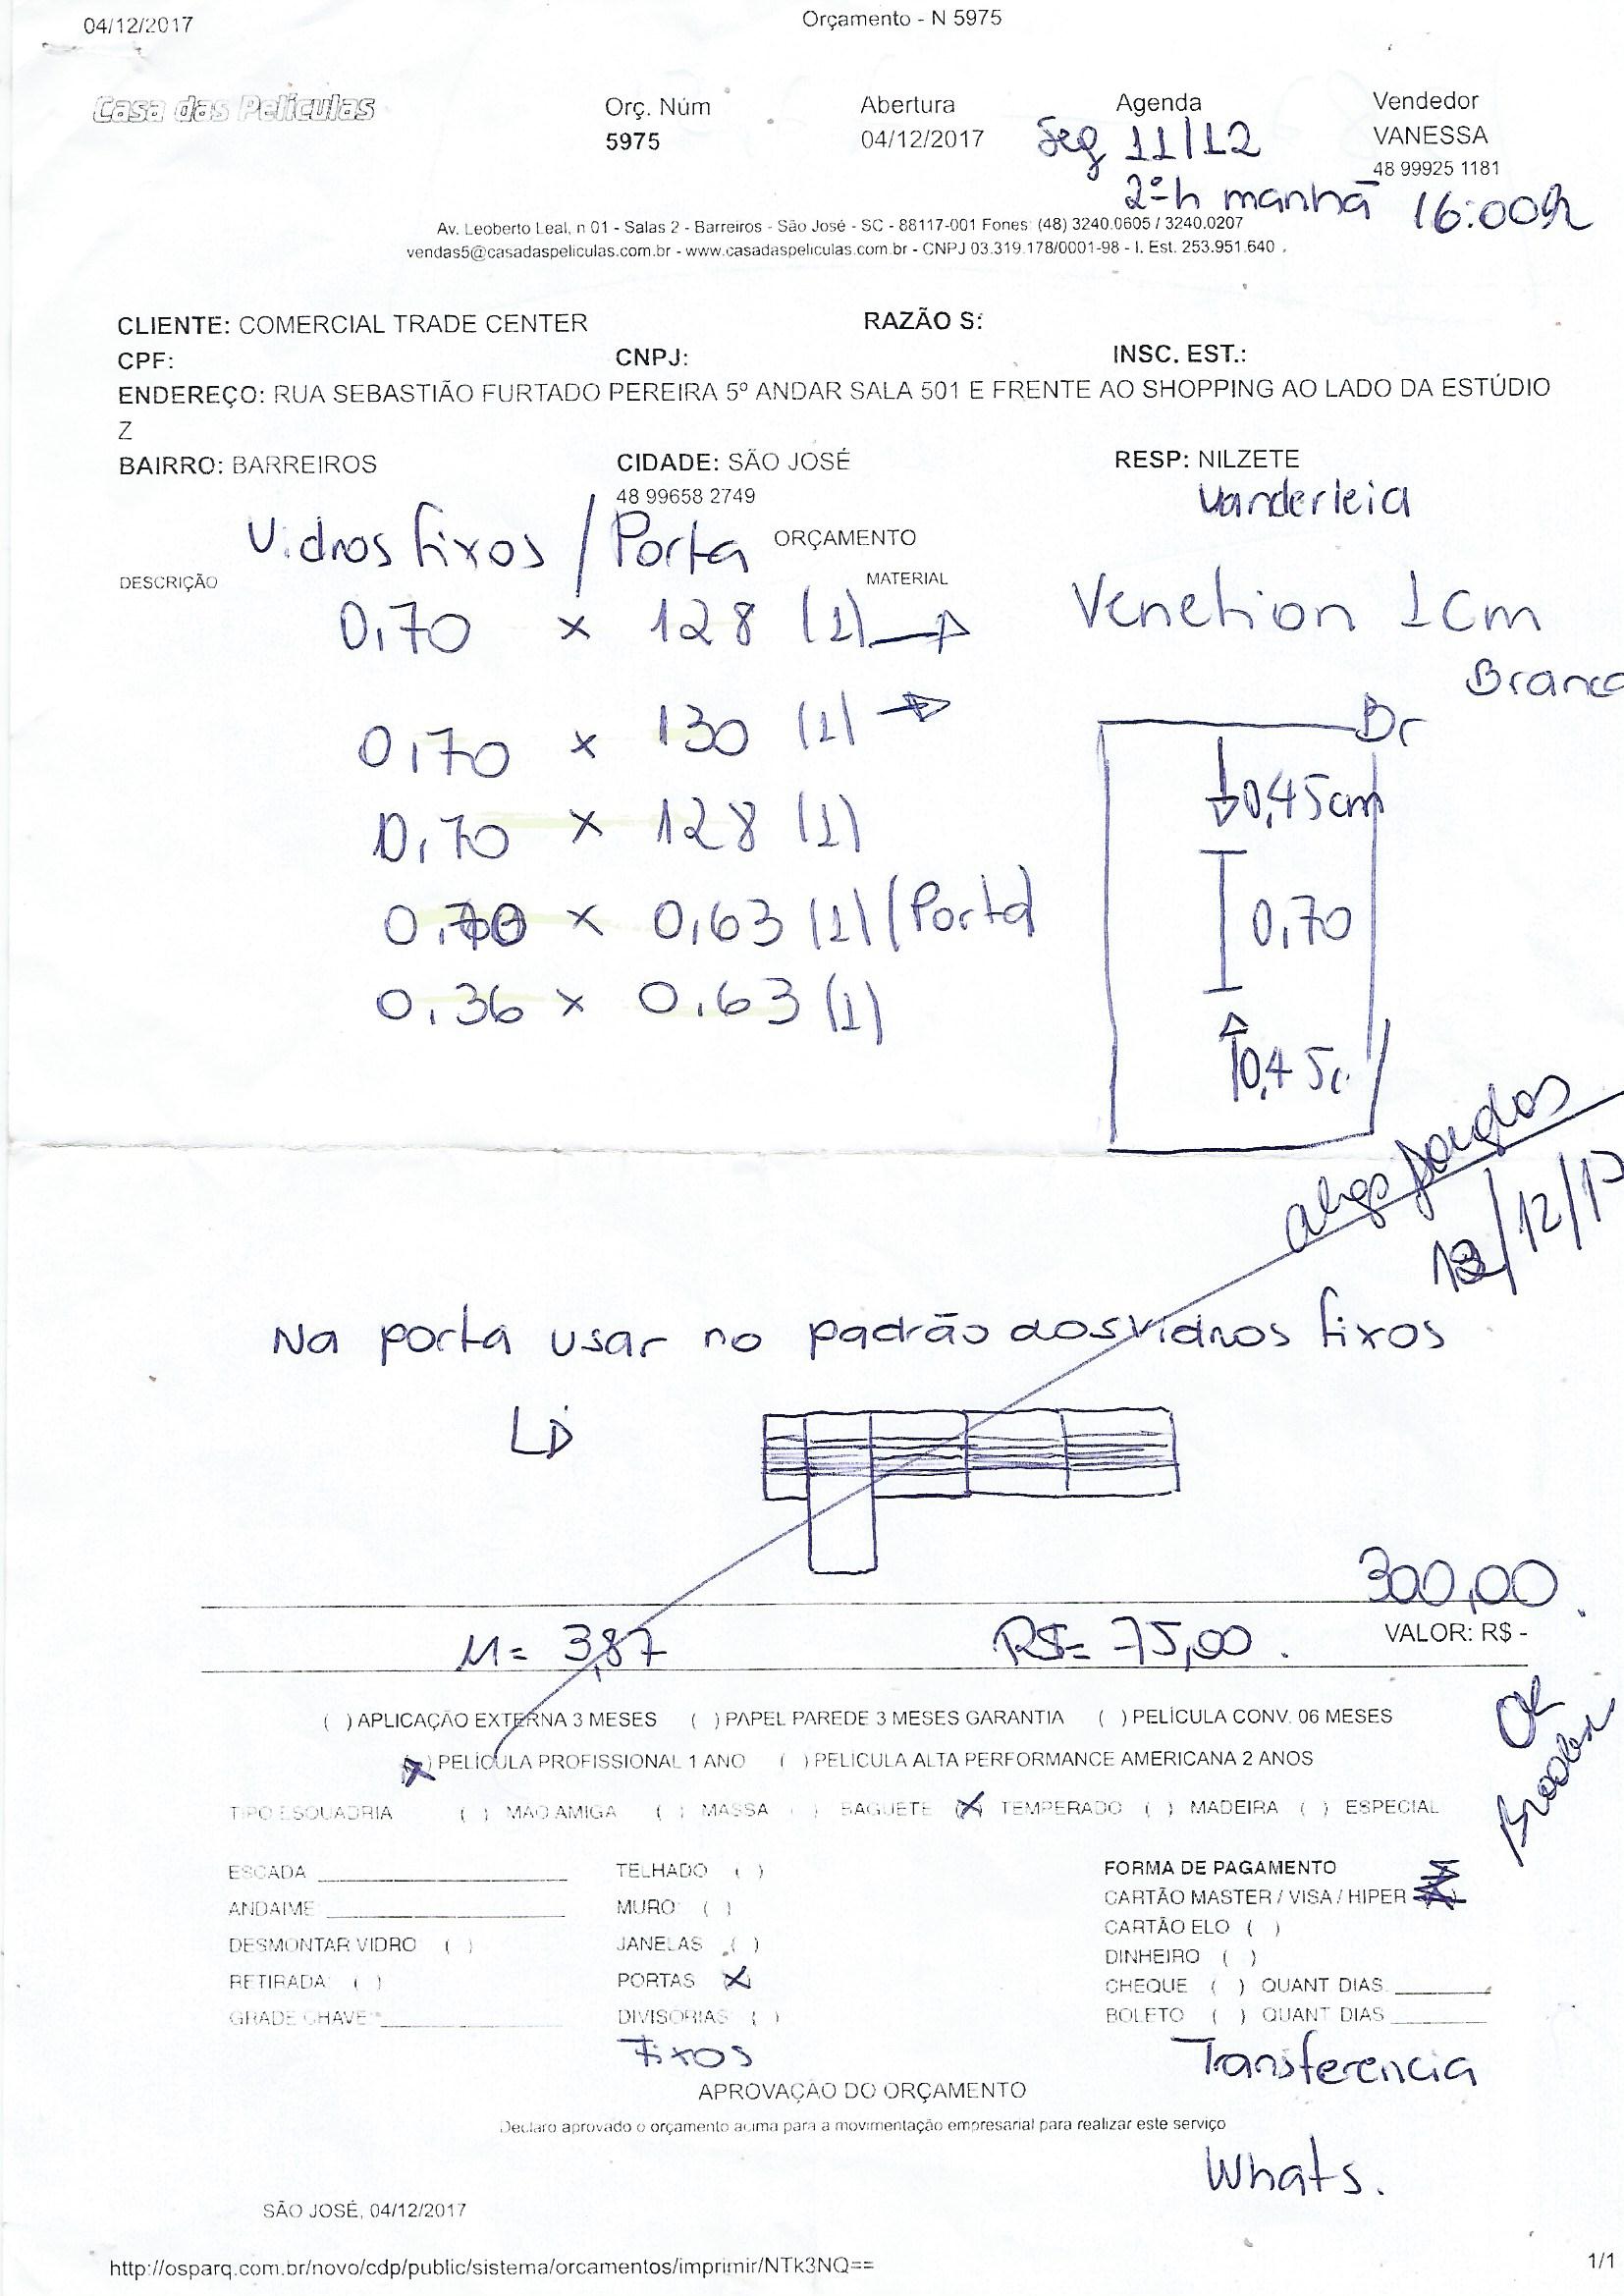 04/12/2017
Orçamento - N 5975
Casa das Películas
Orç. Núm
5975
Abertura
04/12/2017
Agenda
Seg 11/12
2ªh manhã 16:00h
Vendedor
VANESSA
48 99925 1181
Av. Leoberto Leal, n 01 - Salas 2 - Barreiros - São José - SC - 88117-001 Fones: (48) 3240.0605 / 3240.0207
vendas5@casadaspeliculas.com.br - www.casadaspeliculas.com.br - CNPJ 03.319.178/0001-98 - I. Est. 253.951.640
CLIENTE: COMERCIAL TRADE CENTER RAZÃO S:
CPF: CNPJ: INSC. EST.:
ENDEREÇO: RUA SEBASTIÃO FURTADO PEREIRA 5º ANDAR SALA 501 E FRENTE AO SHOPPING AO LADO DA ESTÚDIO
Z
BAIRRO: BARREIROS CIDADE: SÃO JOSÉ RESP: NILZETE
48 99658 2749
Vanderleia
Vidros fixos / Porta
ORÇAMENTO
DESCRIÇÃO MATERIAL
0,70 x 128 (1) Venetion 1cm
Branca
0,70 x 130 (1)
Dr
0,70 x 128 (1)
0,45cm
0,70 x 0,63 (1) (Porta)
0,70
0,36 x 0,63 (1)
0,45c
pagos
12/12/17
Na porta usar no padrão dos vidros fixos
LD
300,00
M = 3,87 R$= 75,00. VALOR: R$ -
( ) APLICAÇÃO EXTERNA 3 MESES ( ) PAPEL PAREDE 3 MESES GARANTIA ( ) PELÍCULA CONV. 06 MESES
(X) PELÍCULA PROFISSIONAL 1 ANO ( ) PELICULA ALTA PERFORMANCE AMERICANA 2 ANOS
OK
TIPO ESQUADRIA ( ) MAO AMIGA ( ) MASSA ( ) BAGUETE (X) TEMPERADO ( ) MADEIRA ( ) ESPECIAL
ESCADA TELHADO ( ) FORMA DE PAGAMENTO
ANDAIME MURO ( ) CARTÃO MASTER / VISA / HIPER
DESMONTAR VIDRO ( ) JANELAS ( ) CARTÃO ELO ( )
RETIRADA ( ) PORTAS (X) DINHEIRO ( )
GRADE CHAVE DIVISORIAS ( ) CHEQUE ( ) QUANT DIAS
BOLETO ( ) QUANT DIAS
Fixos Transferencia
APROVAÇÃO DO ORÇAMENTO
Declaro aprovado o orçamento acima para a movimentação empresarial para realizar este serviço
Whats.
SÃO JOSÉ, 04/12/2017
http://osparq.com.br/novo/cdp/public/sistema/orcamentos/imprimir/NTk3NQ==
1/1